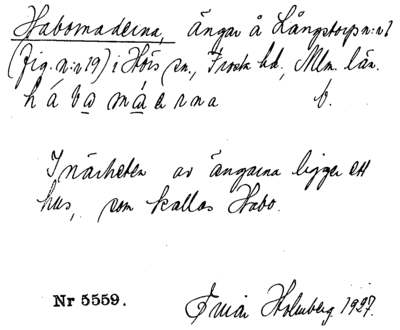 Habomaderna, ängar å Långstorps n:r 1
(fig. n:r 19) i Hörs sn, Frosta hd, Mlm. län.
hábamáerna b.
I närheten av ängarna ligger ett
hus, som kallas Habo.
Nr 5559.
Holmberg 1927.